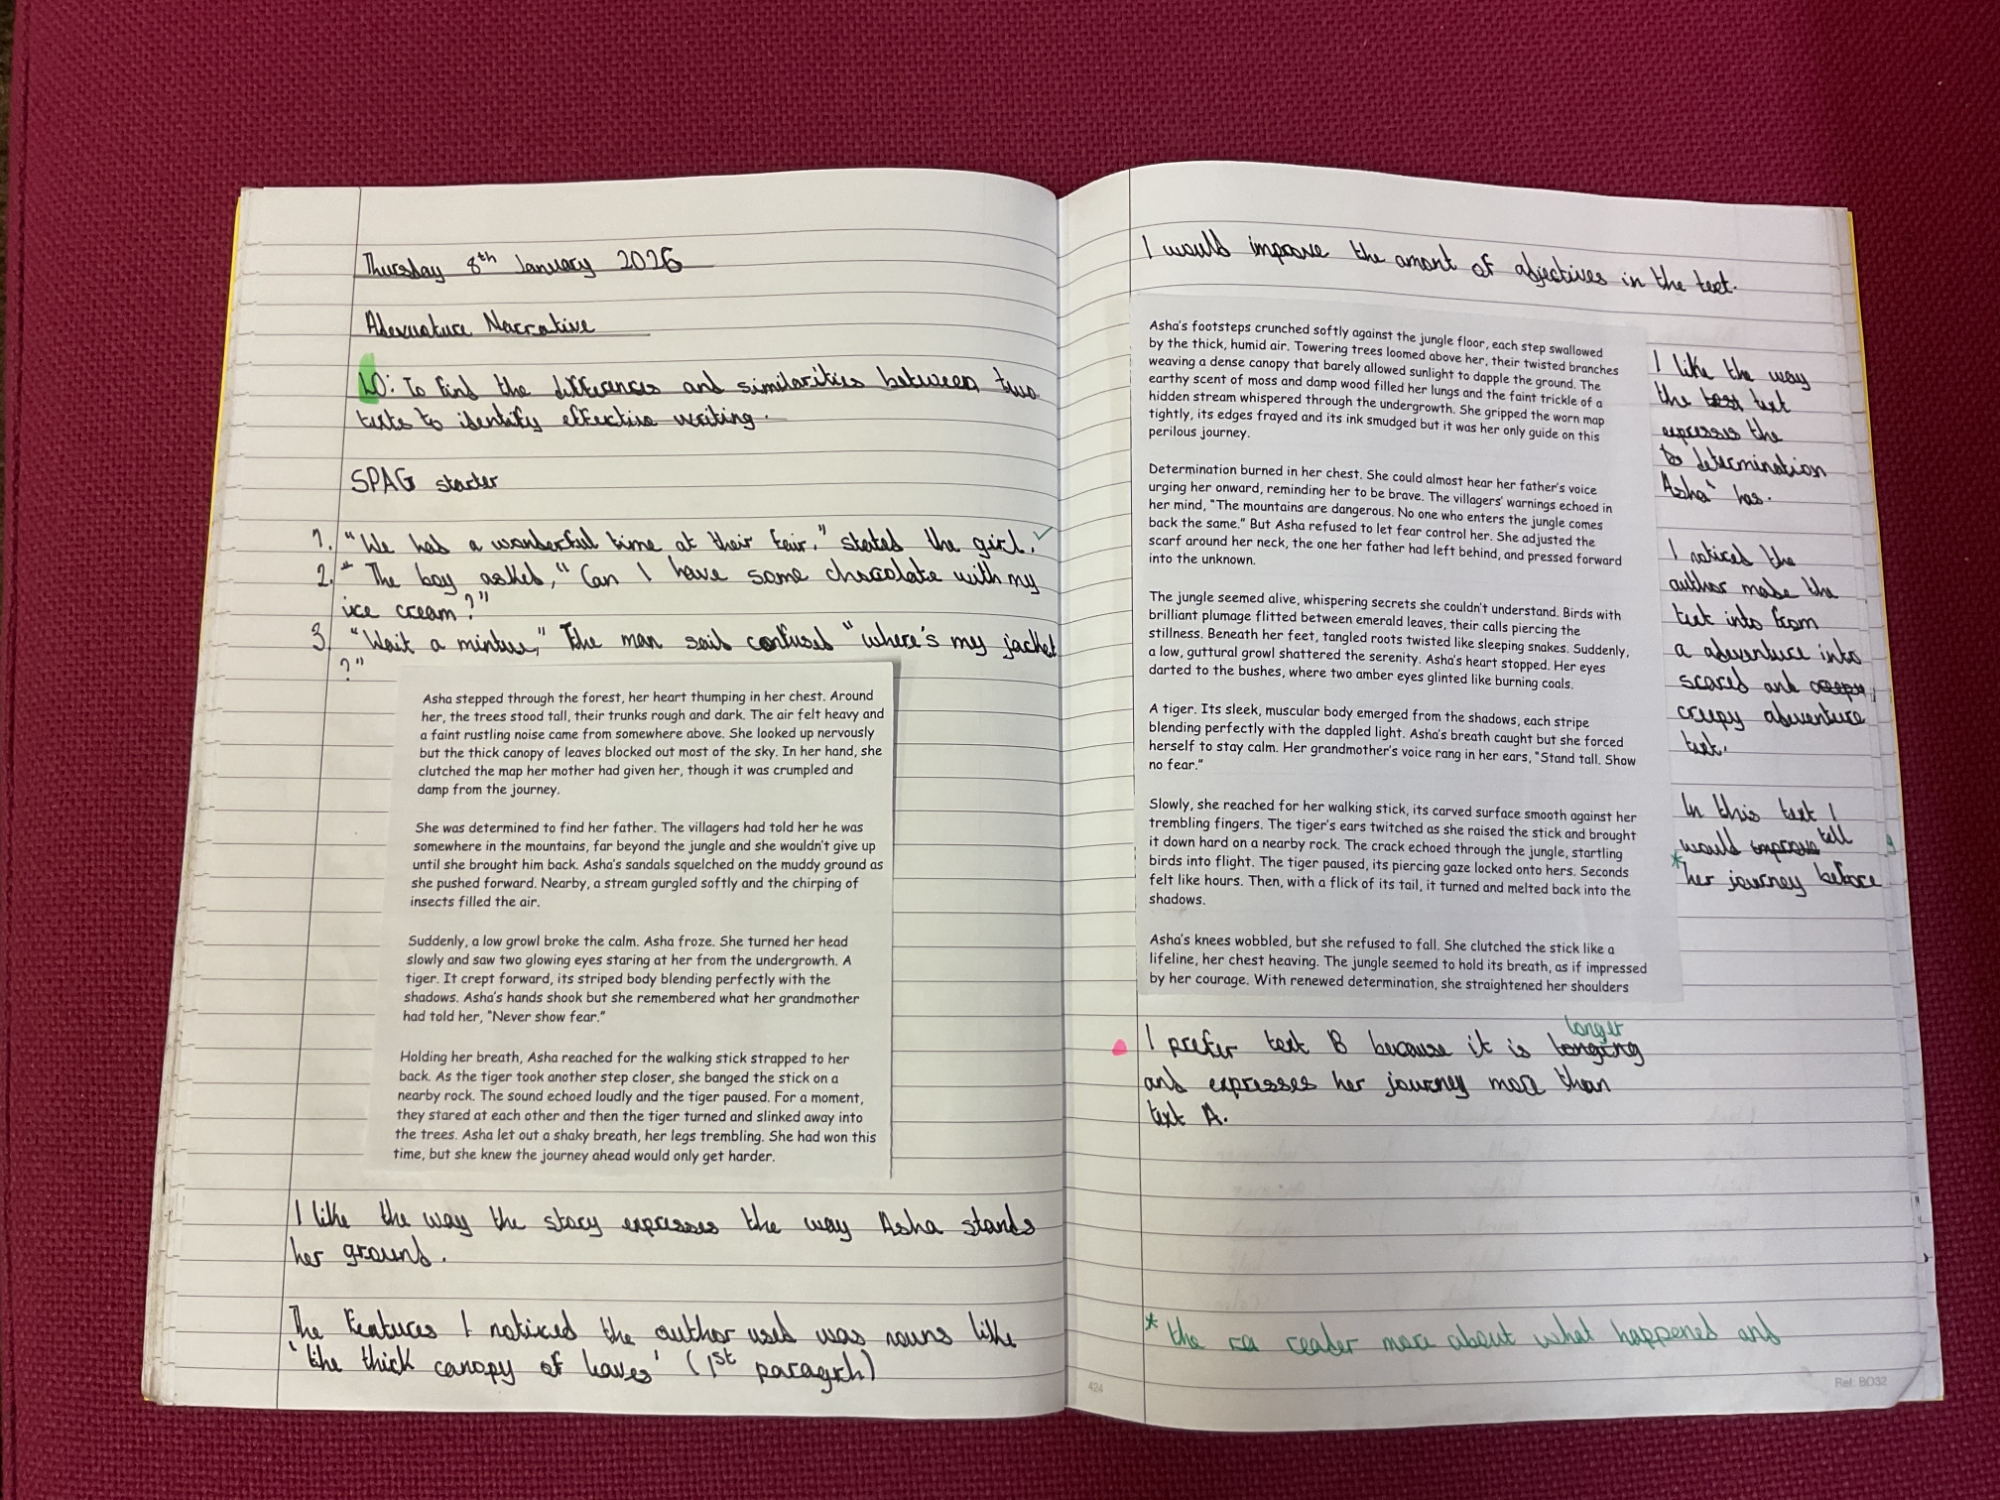 Thursday 8th January 2026
Adevnature Narrative
LO: To find the differences and similarities between two
texts to identify effective writing.
SPAG starter
1. "We had a wonderful time at their fair." stated the girl.
2. " The boy asked, "Can I have some chocolate with my
ice cream?"
3. "Wait a mintue," The man said confused "where's my jacket
?"
Asha stepped through the forest, her heart thumping in her chest. Around
her, the trees stood tall, their trunks rough and dark. The air felt heavy and
a faint rustling noise came from somewhere above. She looked up nervously
but the thick canopy of leaves blocked out most of the sky. In her hand, she
clutched the map her mother had given her, though it was crumpled and
damp from the journey.
She was determined to find her father. The villagers had told her he was
somewhere in the mountains, far beyond the jungle and she wouldn't give up
until she brought him back. Asha's sandals squelched on the muddy ground as
she pushed forward. Nearby, a stream gurgled softly and the chirping of
insects filled the air.
Suddenly, a low growl broke the calm. Asha froze. She turned her head
slowly and saw two glowing eyes staring at her from the undergrowth. A
tiger. It crept forward, its striped body blending perfectly with the
shadows. Asha's hands shook but she remembered what her grandmother
had told her, "Never show fear."
Holding her breath, Asha reached for the walking stick strapped to her
back. As the tiger took another step closer, she banged the stick on a
nearby rock. The sound echoed loudly and the tiger paused. For a moment,
they stared at each other and then the tiger turned and slinked away into
the trees. Asha let out a shaky breath, her legs trembling. She had won this
time, but she knew the journey ahead would only get harder.
I like the way the story expresses the way Asha stands
her ground.
The features I noticed the author used was nouns like
'the thick canopy of leaves' (1st paragrh)
I would improve the amont of adjectives in the text.
Asha's footsteps crunched softly against the jungle floor, each step swallowed
by the thick, humid air. Towering trees loomed above her, their twisted branches
weaving a dense canopy that barely allowed sunlight to dapple the ground. The
earthy scent of moss and damp wood filled her lungs and the faint trickle of a
hidden stream whispered through the undergrowth. She gripped the worn map
tightly, its edges frayed and its ink smudged but it was her only guide on this
perilous journey.
Determination burned in her chest. She could almost hear her father's voice
urging her onward, reminding her to be brave. The villagers' warnings echoed in
her mind, "The mountains are dangerous. No one who enters the jungle comes
back the same." But Asha refused to let fear control her. She adjusted the
scarf around her neck, the one her father had left behind, and pressed forward
into the unknown.
The jungle seemed alive, whispering secrets she couldn't understand. Birds with
brilliant plumage flitted between emerald leaves, their calls piercing the
stillness. Beneath her feet, tangled roots twisted like sleeping snakes. Suddenly,
a low, guttural growl shattered the serenity. Asha's heart stopped. Her eyes
darted to the bushes, where two amber eyes glinted like burning coals.
A tiger. Its sleek, muscular body emerged from the shadows, each stripe
blending perfectly with the dappled light. Asha's breath caught but she forced
herself to stay calm. Her grandmother's voice rang in her ears, "Stand tall. Show
no fear."
Slowly, she reached for her walking stick, its carved surface smooth against her
trembling fingers. The tiger's ears twitched as she raised the stick and brought
it down hard on a nearby rock. The crack echoed through the jungle, startling
birds into flight. The tiger paused, its piercing gaze locked onto hers. Seconds
felt like hours. Then, with a flick of its tail, it turned and melted back into the
shadows.
Asha's knees wobbled, but she refused to fall. She clutched the stick like a
lifeline, her chest heaving. The jungle seemed to hold its breath, as if impressed
by her courage. With renewed determination, she straightened her shoulders
I like the way
the text
expresses the
determination
Asha has.
I noticed the
author made the
text into from
a adventure into
scared and
creepy adventure
text.
In this text I
would improve tell
* her journey before
longer
I prefer text B because it is longing
and expresses her journey more than
text A.
* the ra reader more about what happened and
424
Ref: BD32